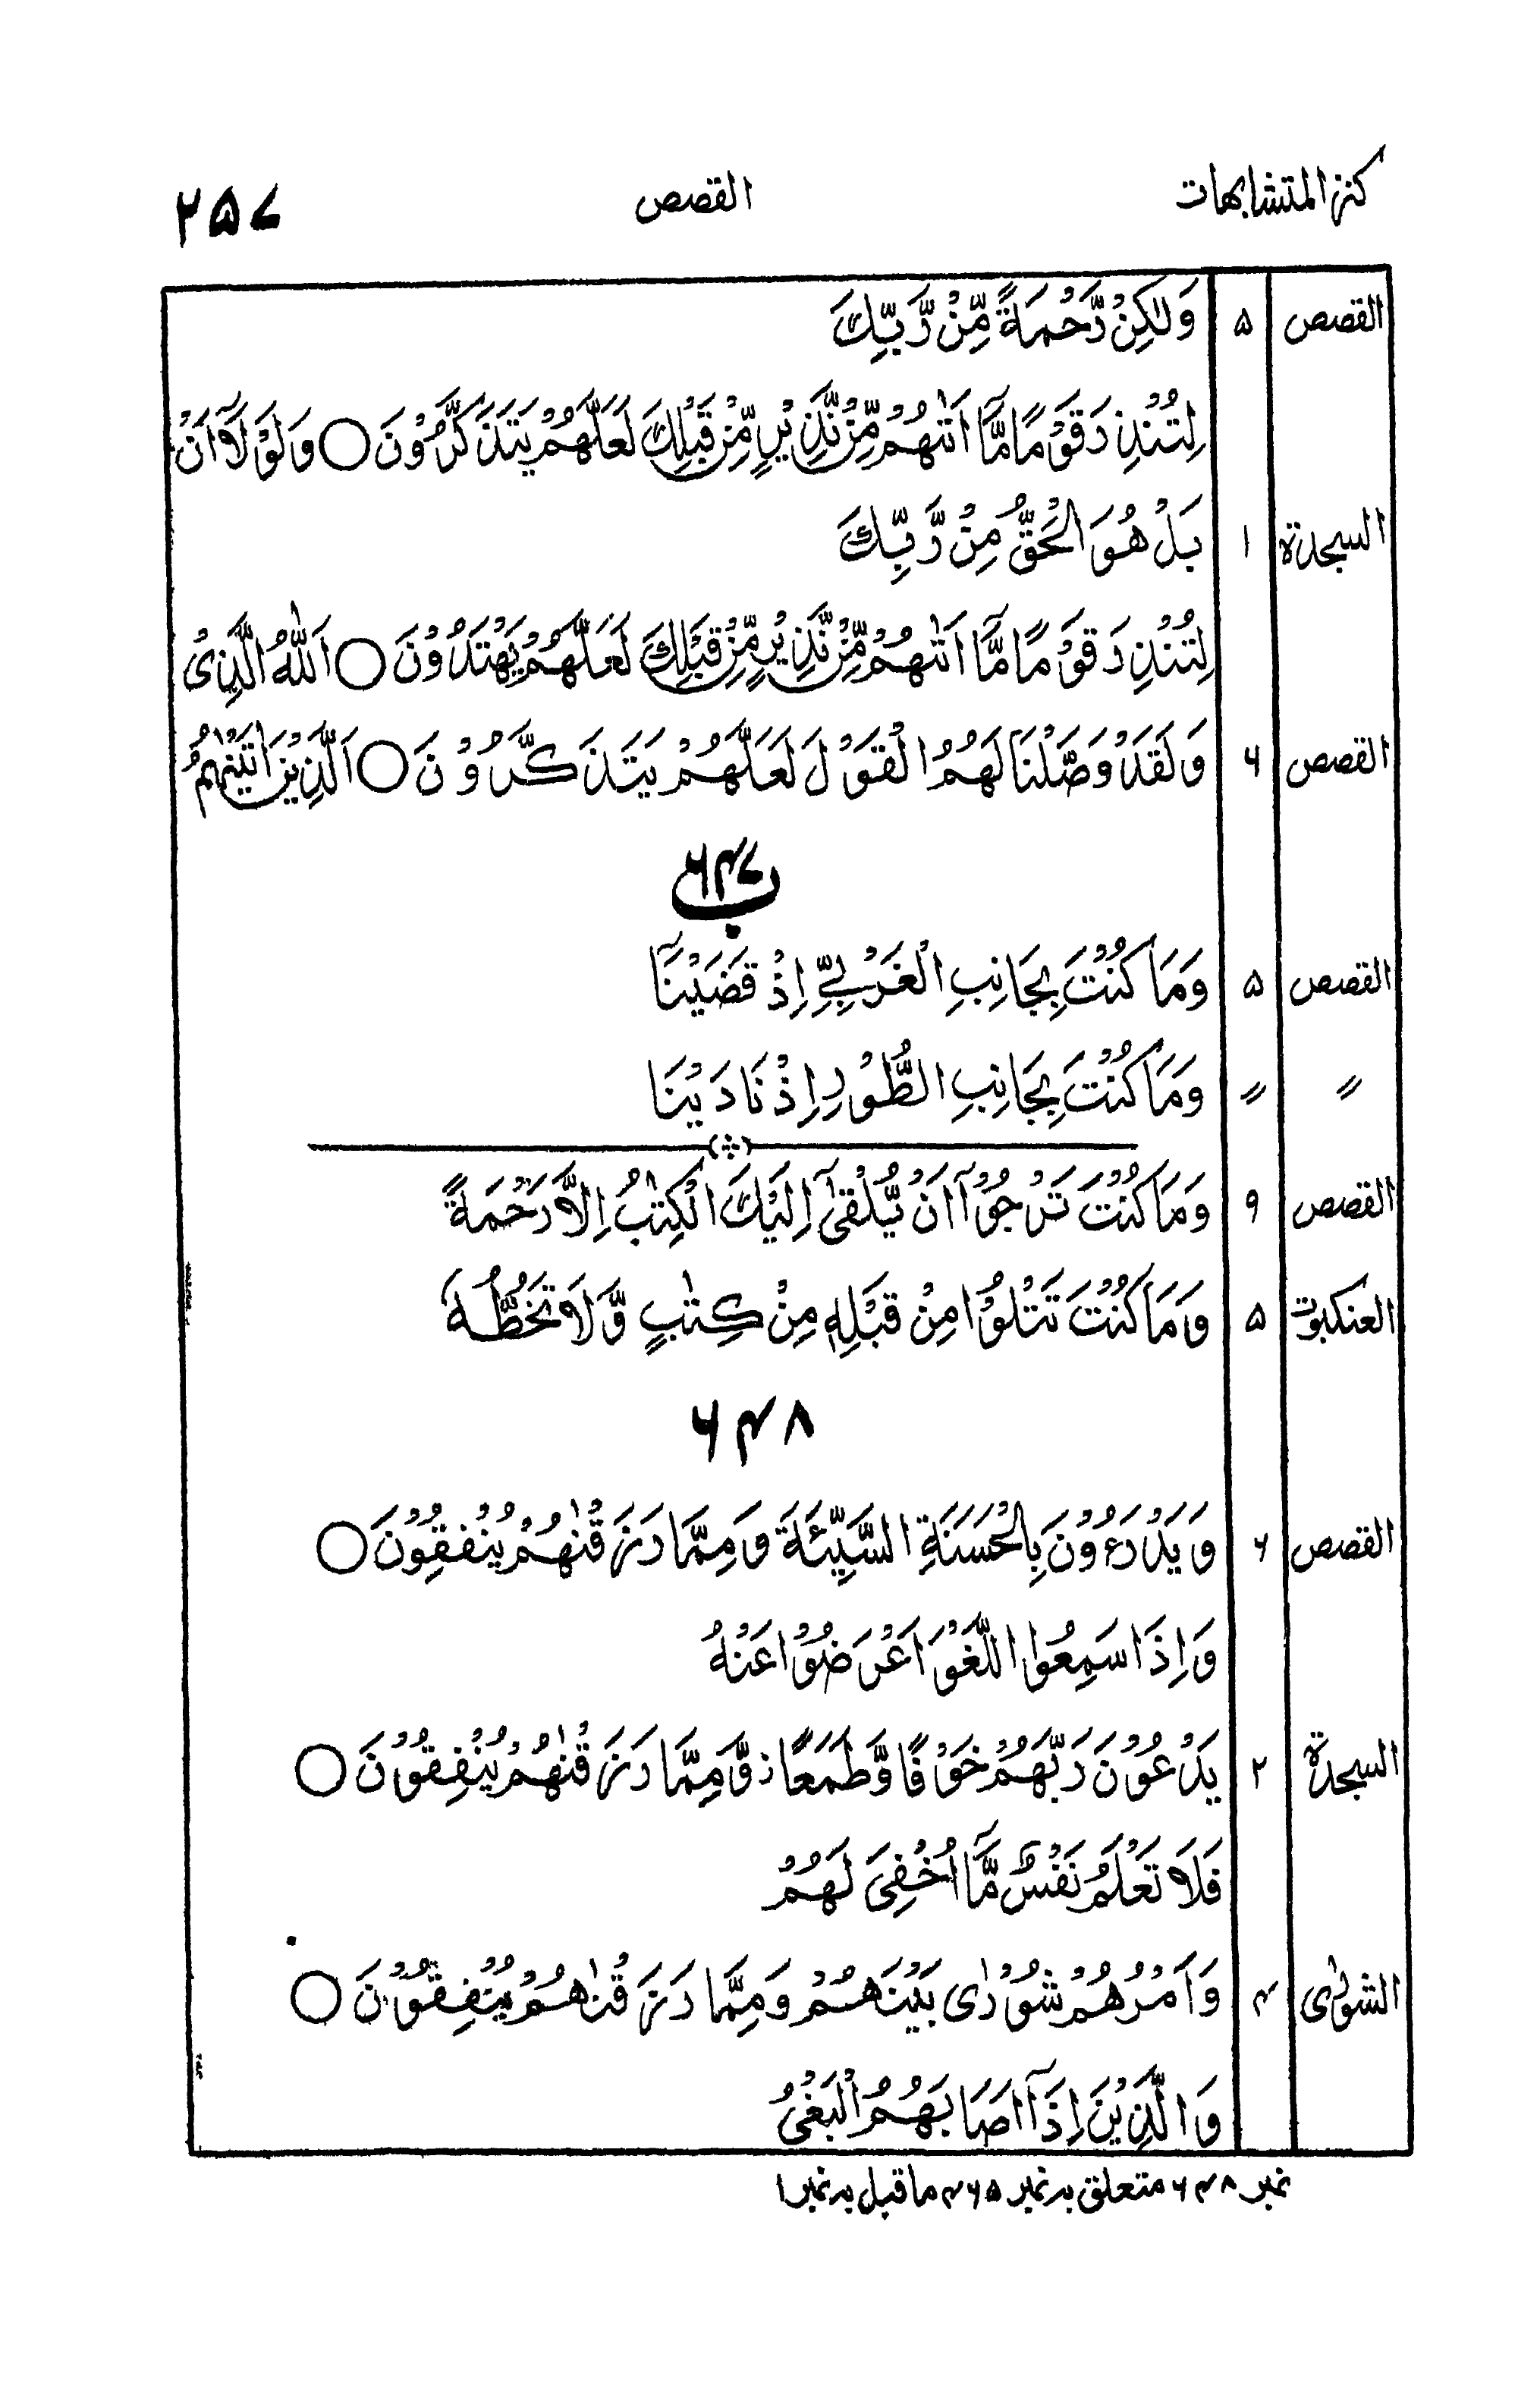 كنز المتشابهات القصص ٢٥٧
القصص ۵ وَلٰكِنْ رَّحْمَةً مِّنْ رَّبِّكَ
لِتُنْذِرَ قَوْمًا مَّآ اَتٰىهُمْ مِّنْ نَّذِيْرٍ مِّنْ قَبْلِكَ لَعَلَّهُمْ يَتَذَكَّرُوْنَ ○ وَلَوْلَآ اَنْ
السجدة ١ بَلْ هُوَ الْحَقُّ مِنْ رَّبِّكَ
لِتُنْذِرَ قَوْمًا مَّآ اَتٰىهُمْ مِّنْ نَّذِيْرٍ مِّنْ قَبْلِكَ لَعَلَّهُمْ يَهْتَدُوْنَ ○ اَللّٰهُ الَّذِىْ
القصص ۶ وَلَقَدْ وَصَّلْنَا لَهُمُ الْقَوْلَ لَعَلَّهُمْ يَتَذَكَّرُوْنَ ○ اَلَّذِيْنَ اٰتَيْنٰهُمُ
۶۴۷ ب
القصص ۵ وَمَا كُنْتَ بِجَانِبِ الْغَرْبِيِّ اِذْ قَضَيْنَآ
〃 〃 وَمَا كُنْتَ بِجَانِبِ الطُّوْرِ اِذْ نَادَيْنَا
القصص ۹ وَمَا كُنْتَ تَرْجُوْٓا اَنْ يُّلْقٰٓى اِلَيْكَ الْكِتٰبُ اِلَّا رَحْمَةً
العنكبوت ۵ وَمَا كُنْتَ تَتْلُوْا مِنْ قَبْلِهٖ مِنْ كِتٰبٍ وَّلَا تَخُطُّهٗ
۶۴۸
القصص ۶ وَيَدْرَءُوْنَ بِالْحَسَنَةِ السَّيِّئَةَ وَمِمَّا رَزَقْنٰهُمْ يُنْفِقُوْنَ ○
وَاِذَا سَمِعُوا اللَّغْوَ اَعْرَضُوْا عَنْهُ
السجدة ٢ يَدْعُوْنَ رَبَّهُمْ خَوْفًا وَّطَمَعًا ز وَّمِمَّا رَزَقْنٰهُمْ يُنْفِقُوْنَ ○
فَلَا تَعْلَمُ نَفْسٌ مَّآ اُخْفِىَ لَهُمْ
الشورٰى ۴ وَاَمْرُهُمْ شُوْرٰى بَيْنَهُمْ وَمِمَّا رَزَقْنٰهُمْ يُنْفِقُوْنَ ○
وَالَّذِيْنَ اِذَآ اَصَابَهُمُ الْبَغْىُ
نمبر ۶۴۸ متعلق بہ نمبر ۴۶۵ ماقبل بہ نمبر ۱